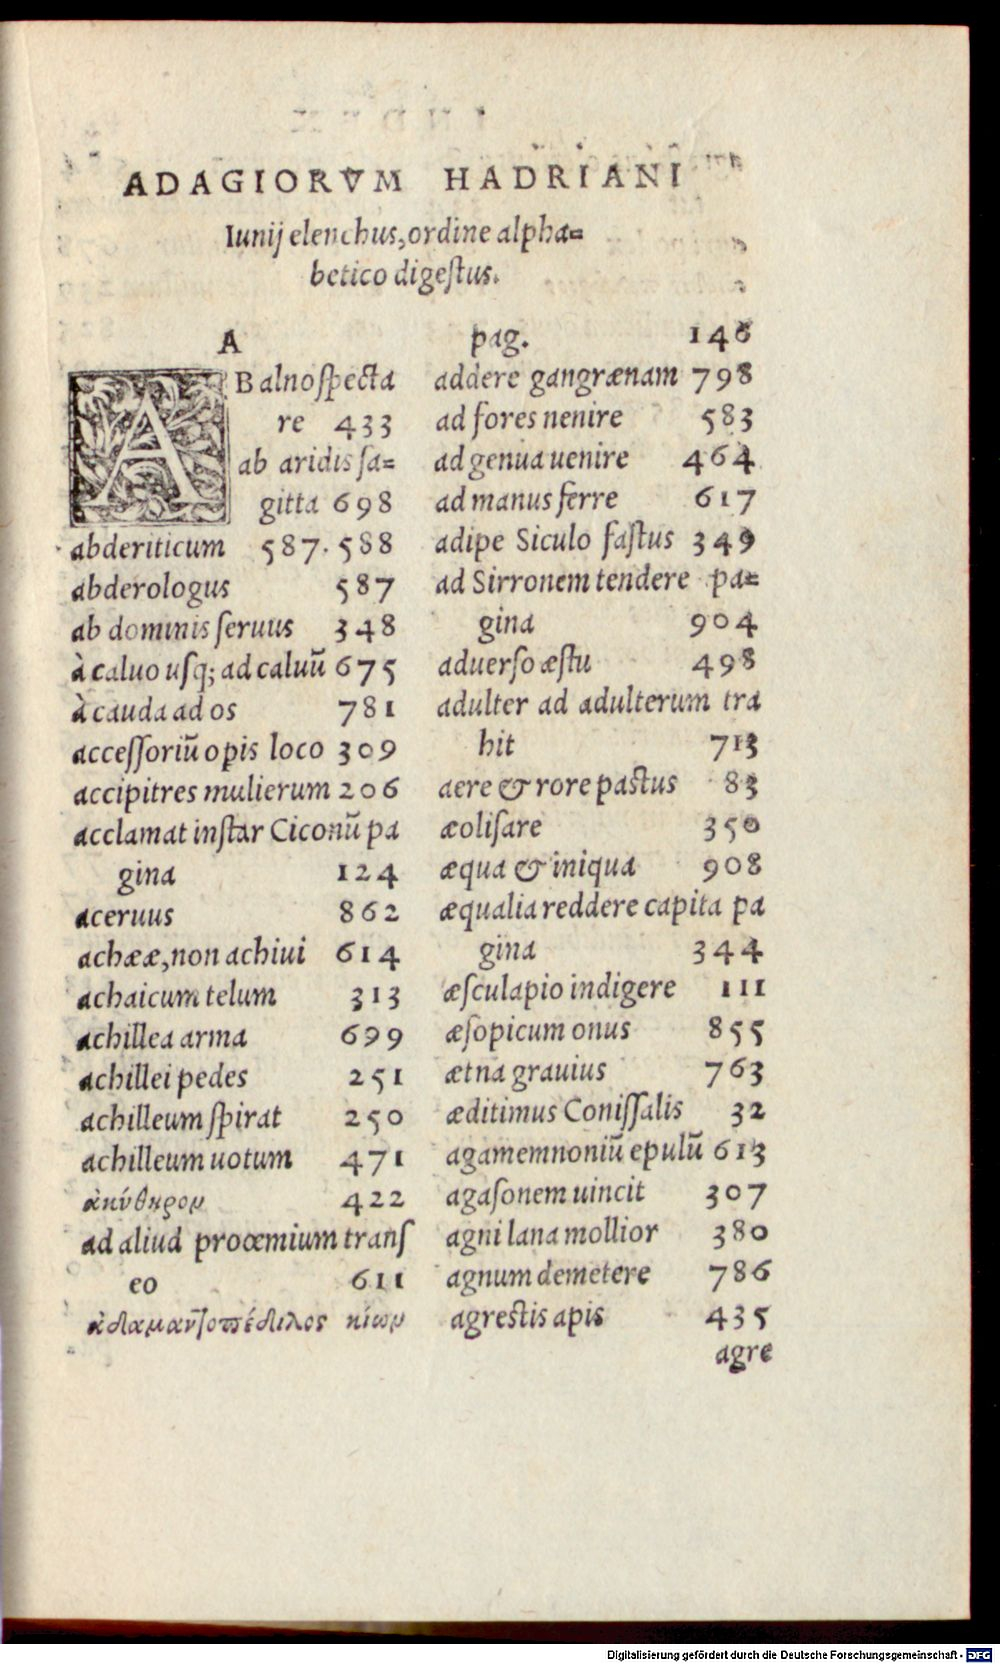 ADAGIORVM HADRIANI
Iunij elenchus, ordine alpha=
betico digestus.
A
AB alno specta
re 433
ab aridis sa=
gitta 698
abderiticum 587. 588
abderologus 587
ab dominis seruus 348
à caluo usq; ad caluũ 675
à cauda ad os 781
accessoriũ opis loco 309
accipitres mulierum 206
acclamat instar Ciconũ pa
gina 124
aceruus 862
achææ, non achiui 614
achaicum telum 313
achillea arma 699
achillei pedes 251
achilleum spirat 250
achilleum uotum 471
ἀκύθηρον 422
ad aliud proœmium trans
eo 611
ἀδαμαντοπέδιλος κίων
pag. 146
addere gangrænam 798
ad fores nenire 583
ad genua uenire 464
ad manus ferre 617
adipe Siculo fastus 349
ad Sirronem tendere pa=
gina 904
aduerso æstu 498
adulter ad adulterum tra
hit 713
aere & rore pastus 83
æolisare 350
æqua & iniqua 908
æqualia reddere capita pa
gina 344
æsculapio indigere 111
æsopicum onus 855
ætna grauius 763
æditimus Conissalis 32
agamemnoniũ epulũ 613
agasonem uincit 307
agni lana mollior 380
agnum demetere 786
agrestis apis 435
agre
Digitalisierung gefördert durch die Deutsche Forschungsgemeinschaft - DFG